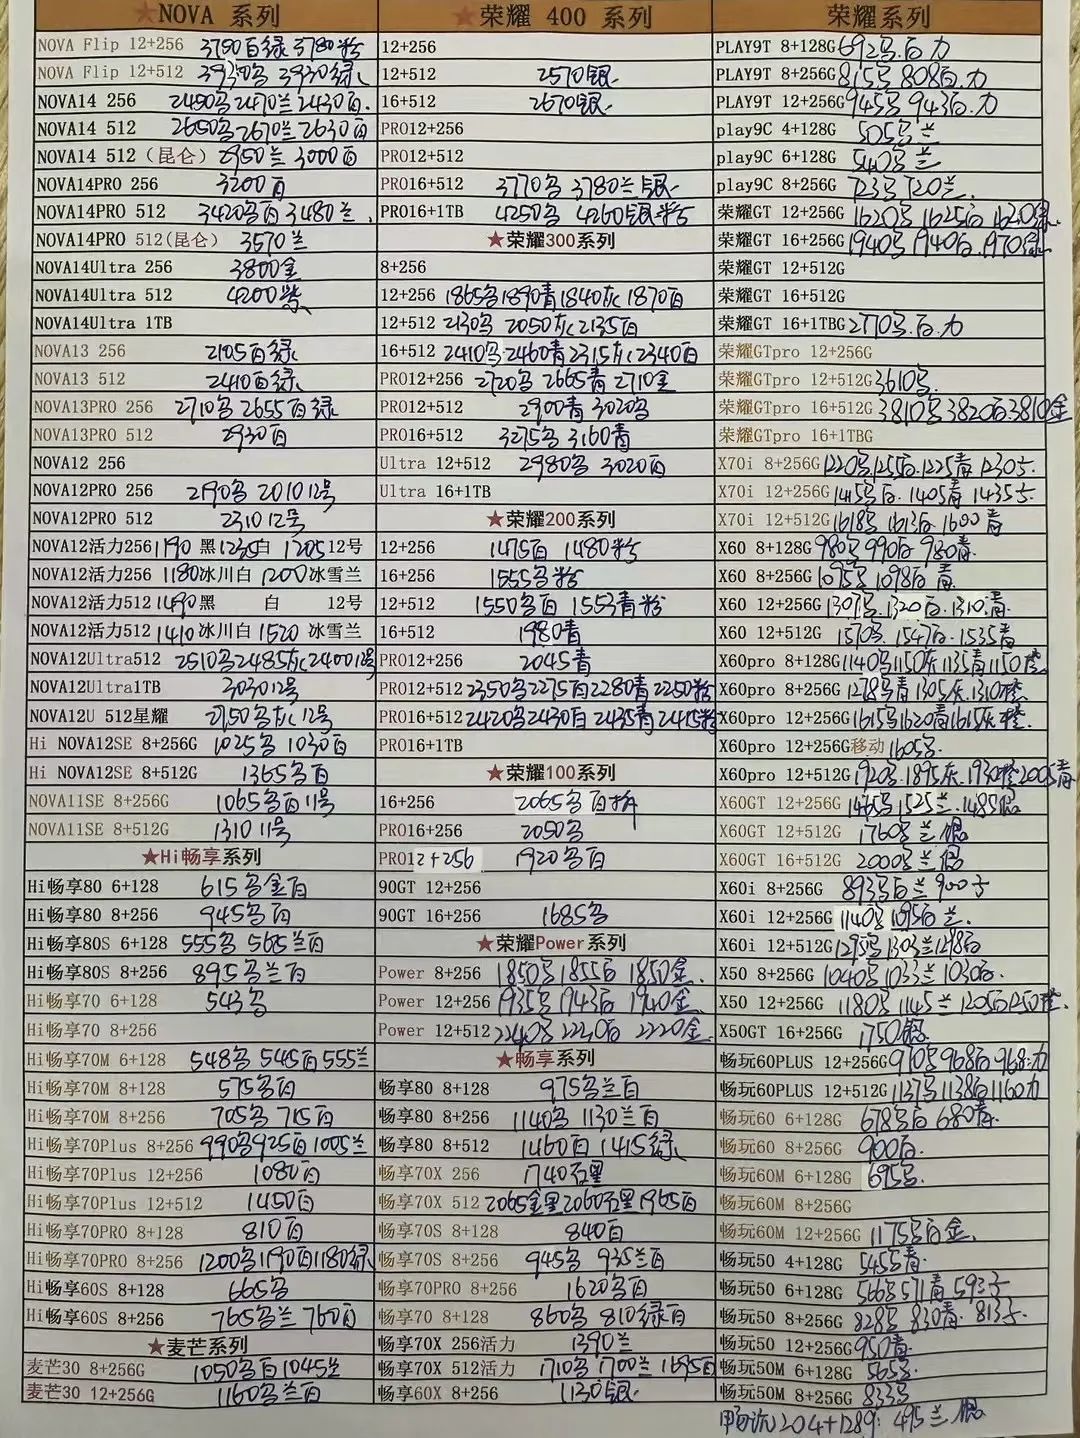 ★NOVA 系列
NOVA Flip 12+256 3780百绿 3780粉
NOVA Flip 12+512 3930为 3930绿
NOVA14 256 2450为2470兰2430百.
NOVA14 512 2650为2670兰2630百
NOVA14 512（昆仑） 2950兰 3000百
NOVA14PRO 256 3200百
NOVA14PRO 512 3420为百3480兰.
NOVA14PRO 512(昆仑) 3570兰
NOVA14Ultra 256 3800金
NOVA14Ultra 512 4200紫
NOVA14Ultra 1TB
NOVA13 256 2105百绿
NOVA13 512 2410百绿
NOVA13PRO 256 2710为 2655百绿
NOVA13PRO 512 2930百
NOVA12 256
NOVA12PRO 256 2190为 2010 12号
NOVA12PRO 512 2310 12号
NOVA12活力256 1190 黑1235白 1205 12号
NOVA12活力256 1180冰川白 1200冰雪兰
NOVA12活力512 1490黑 白 12号
NOVA12活力512 1410冰川白1520 冰雪兰
NOVA12Ultra512 2510为2485灰2400 12号
NOVA12Ultra1TB 3030 12号
NOVA12U 512星耀 2750为灰 12号
Hi NOVA12SE 8+256G 1025为 1030百
Hi NOVA12SE 8+512G 1365为百
NOVA11SE 8+256G 1065为百11号
NOVA11SE 8+512G 1310 11号
★Hi畅享系列
Hi畅享80 6+128 615为金百
Hi畅享80 8+256 945为百
Hi畅享80S 6+128 555为 565兰百
Hi畅享80S 8+256 895为兰百
Hi畅享70 6+128 543为
Hi畅享70 8+256
Hi畅享70M 6+128 548为 545百555兰
Hi畅享70M 8+128 575为百
Hi畅享70M 8+256 705为 715百
Hi畅享70Plus 8+256 990为925百1005兰
Hi畅享70Plus 12+256 1080百
Hi畅享70Plus 12+512 1450百
Hi畅享70PRO 8+128 810百
Hi畅享70PRO 8+256 1200为1190百1180绿
Hi畅享60S 8+128 665为
Hi畅享60S 8+256 765为兰 760百
★麦芒系列
麦芒30 8+256G 1050为百1045兰
麦芒30 12+256G 1160为兰百
★荣耀 400 系列
12+256
12+512 2570银
16+512 2670银
PRO12+256
PRO12+512
PRO16+512 3770为 3780兰银
PRO16+1TB 4250为 4260银粉
★荣耀300系列
8+256
12+256 1865为1890青1840灰1870百
12+512 2130为 2050灰2135百
16+512 2410为2460青2315灰2340百
PRO12+256 2720为 2665青2710金
PRO12+512 2900青 3020为
PRO16+512 3275为 3160青
Ultra 12+512 2980为 3020百
Ultra 16+1TB
★荣耀200系列
12+256 1475百 1480粉
16+256 1555为粉
12+512 1550为百 1553青粉
16+512 1980青
PRO12+256 2045青
PRO12+512 2350为2275百2280青2250粉
PRO16+512 2420为2430百2435青2415粉
PRO16+1TB
★荣耀100系列
16+256 2065为百
PRO16+256 2050为
PRO12+256 1920为百
90GT 12+256
90GT 16+256 1685为
★荣耀Power系列
Power 8+256 1850为1855百1850金.
Power 12+256 1935为1943百1940金.
Power 12+512 2240为2240百 2220金.
★畅享系列
畅享80 8+128 975为兰百
畅享80 8+256 1140为 1130兰百
畅享80 8+512 1460百 1415绿
畅享70X 256 1740黑
畅享70X 512 2065金黑2060黑1965百
畅享70S 8+128 840百
畅享70S 8+256 945为 935兰百
畅享70PRO 8+256 1620为百
畅享70 8+256 860为 810绿百
畅享70X 256活力 1390兰
畅享70X 512活力 1710为 1700兰 1695百
畅享60X 8+256 1130银
荣耀系列
PLAY9T 8+128G 692为.百.力
PLAY9T 8+256G 815为 808百.力
PLAY9T 12+256G 945为 943百.力
play9C 4+128G 505为兰
play9C 6+128G 540为兰
play9C 8+256G 723为720兰
荣耀GT 12+256G 1620为1625百1620绿
荣耀GT 16+256G 1940为1940百.1970绿
荣耀GT 12+512G
荣耀GT 16+512G
荣耀GT 16+1TBG 2770为.百.力
荣耀GTpro 12+256G
荣耀GTpro 12+512G 3610为.
荣耀GTpro 16+512G 3810为3820百3810金
荣耀GTpro 16+1TBG
X70i 8+256G 1220为1255百1225青1230
X70i 12+256G 1415为百.1405青1435
X70i 12+512G 1618为 1613百1600青
X60 8+128G 980为990百980青
X60 8+256G 1095为1098百青
X60 12+256G 1307为.1320百.1310青
X60 12+512G 1570为.1547百.1535青
X60pro 8+128G 1140为1150灰1135青1150橙
X60pro 8+256G 1278为青1305灰.1310橙
X60pro 12+256G 1615为1620青1615灰橙
X60pro 12+256G移动 1605为.
X60pro 12+512G 1920为.1895灰.1930橙2005青
X60GT 12+256G 1465为1525兰1485银
X60GT 12+512G 1760为兰银
X60GT 16+512G 2000为兰银
X60i 8+256G 893为百兰900
X60i 12+256G 1140为1095百兰.
X60i 12+512G 1295为1303兰1298百
X50 8+256G 1040为1033兰1030百.
X50 12+256G 1180为1145兰1205百1250橙
X50GT 16+256G 1750银
畅玩60PLUS 12+256G 970为968百968力
畅玩60PLUS 12+512G 1137为1138百1160力
畅玩60 6+128G 678为百680青
畅玩60 8+256G 900百.
畅玩60M 6+128G 695为.
畅玩60M 8+256G
畅玩60M 12+256G 1175为百金.
畅玩50 4+128G 545为青
畅玩50 6+128G 566为571青593
畅玩50 8+256G 828为830青.813
畅玩50 12+256G 950青
畅玩50M 6+128G 565为
畅玩50M 8+256G 833为
畅玩20 4+128G: 495兰银